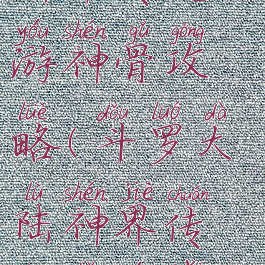 yóu shén gǔ gōng
游神骨攻
lüè dòu luó dà
略(斗罗大
lù shén jiè chuán
陆神界传